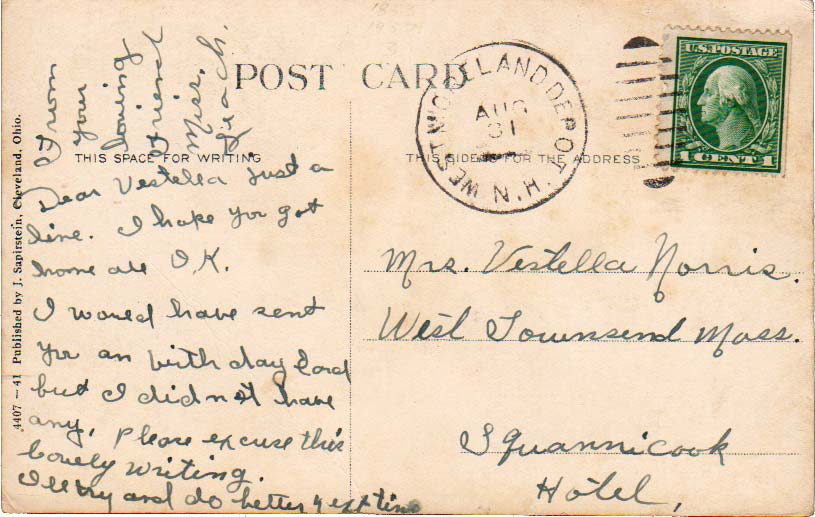 POST CARD
THIS SPACE FOR WRITING
THIS SIDE IS FOR THE ADDRESS
4407 — 41 Published by J. Sapirstein, Cleveland, Ohio.
U.S. POSTAGE
1 CENT 1
WEST MORELAND DEPOT. N.H.
AUG
31
Dear Vestella Just a
line. I hope you got
home all O.K.
I would have sent
you an birth day card
but I did not have
any, Please excuse this
lovely writing.
I'll try and do better next time
From
your
loving
Friend
Miss.
Mrs. Vestella Norris.
West Townsend Mass.
Squannicook
Hotel,